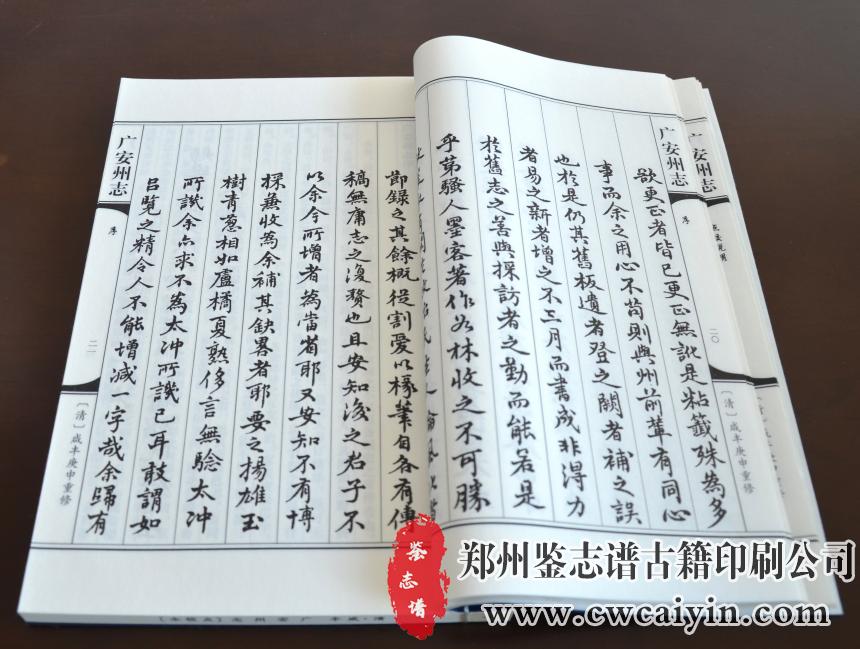 广安州志
广安州志
序
二〇
〔清〕咸丰庚申重修
欲更正者皆已更正無訛是粘籤殊為多
事而余之用心不苟則與州前輩有同心
也於是仍其舊板遺者登之闕者補之誤
者易之新者增之不三月而書成非得力
於舊志之善與採訪者之勤而能若是
乎第騷人墨客著作如林收之不可勝
節錄之其餘概從割愛以椽筆自各有傳
稿無庸志之復贅也且安知後之君子不
以余今所增者為當省耶又安知不有博
採兼收為余補其缺畧者耶要之揚雄玉
樹青蔥相如盧橘夏熟侈言無驗太冲
所譏余亦求不為太冲所譏已耳敢謂如
呂覽之精令人不能增減一字哉余歸有
广安州志
序
二一
〔清〕咸丰庚申重修
鉴志谱
郑州鉴志谱古籍印刷公司
www.cwcaiyin.com